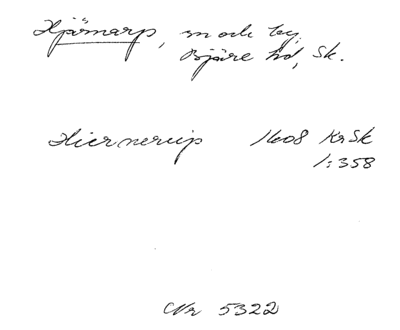 Hjärnarp, sn och by,
Bjäre hd, Sk.
Hiernerup 1608 KrSk
1:358
Nr 5322